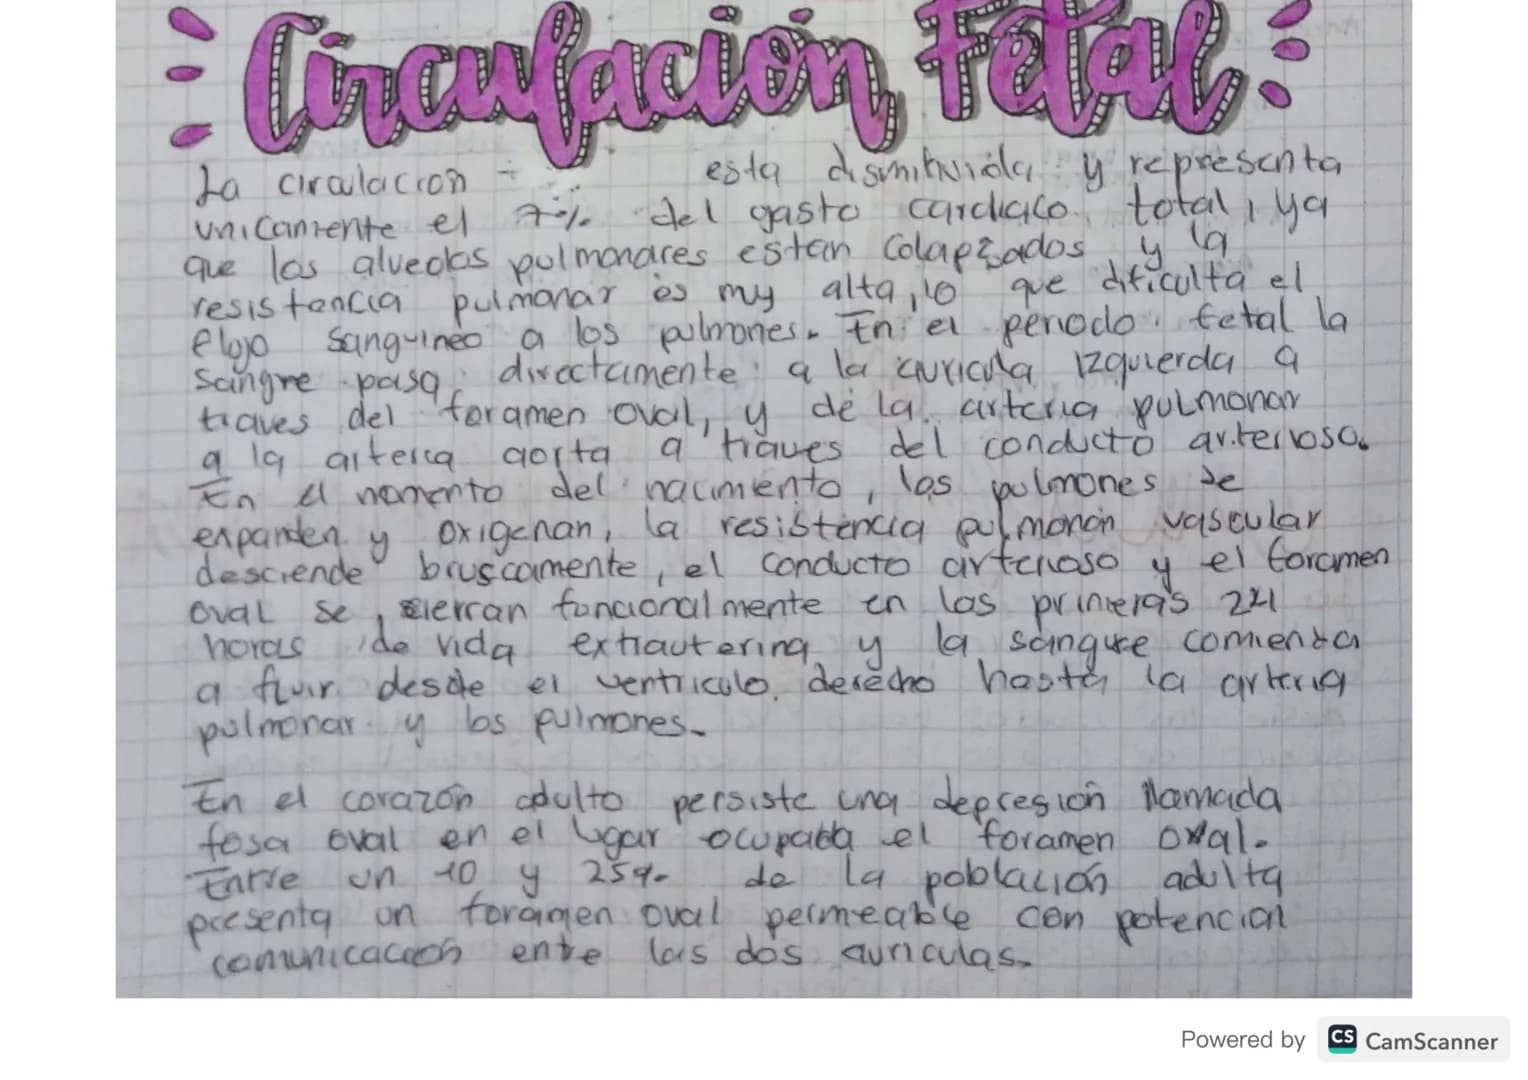 Circulación Fetal
La circulación esta disminuida y representa
unicamente el 7% del gasto cardiaco total, ya
que los alveolos pulmonares estan colapsados y la
resistencia pulmonar es muy alta, lo que dificulta el
flujo sanguineo a los pulmones. En el periodo fetal la
sangre pasa directamente a la auricula izquierda a
traves del foramen oval, y de la arteria pulmonar
a la arteria aorta a traves del conducto arterioso.
En el momento del nacimiento, los pulmones se
expanden y oxigenan, la resistencia pulmonar vascular
desciende bruscamente, el conducto arterioso y el foramen
oval se cierran funcionalmente en las primeras 24
horas de vida extrauterina y la sangre comienza
a fluir desde el ventriculo derecho hasta la arteria
pulmonar y los pulmones.
En el corazón adulto persiste una depresión llamada
fosa oval en el lugar ocupaba el foramen oval.
Entre un 10 y 25% de la población adulta
presenta un foramen oval permeable con potencion
comunicación entre las dos auriculas.
Powered by CS CamScanner